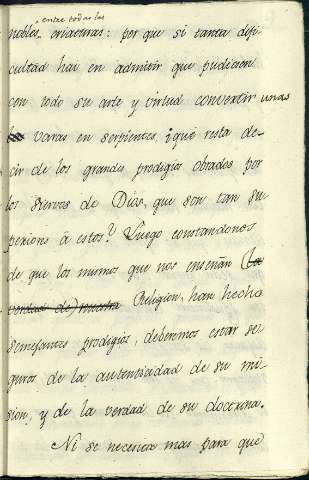 entre todas las
nobles criaturas: por que si tanta difi-
cultad hai en admitir que pudiesen
con todo su arte y virtud convertir unas
varas en serpientes ¿que resta de-
cir de los grandes prodigios obrados por
los siervos de Dios, que son tan su
periores á estos? Luego constandonos
de que los mismos que nos enseñan (la
verdad de) nuestra Religion, han hecho
semejantes prodigios, deberemos estar se
guros de la autenticidad de su mi-
sion, y de la verdad de su doctrina.
Ni se necesita mas para que